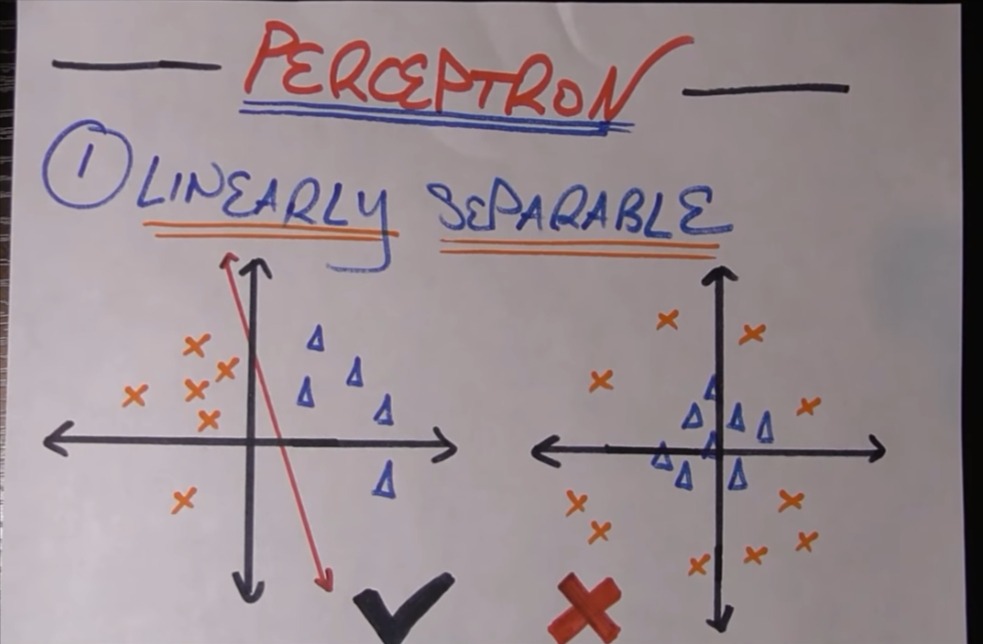 PERCEPTRON
① LINEARLY SEPARABLE